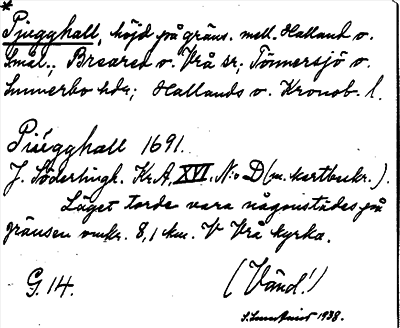 *
Pjugghall, höjd på gräns. mell. Halland o.
Smål.; Breared o. Vrå sr; Tönnersjö o.
Sunnerbo hdr; Hallands o. Kronob. l.
Piugghall 1691.
J. Söderlingh. Kr.A. XVI. N:o D (m. kartbeskr.).
Läget torde vara någonstädes på
gränsen omkr. 8,1 km. V Vrå kyrka.
G. 14.
(Vänd!)
1938.